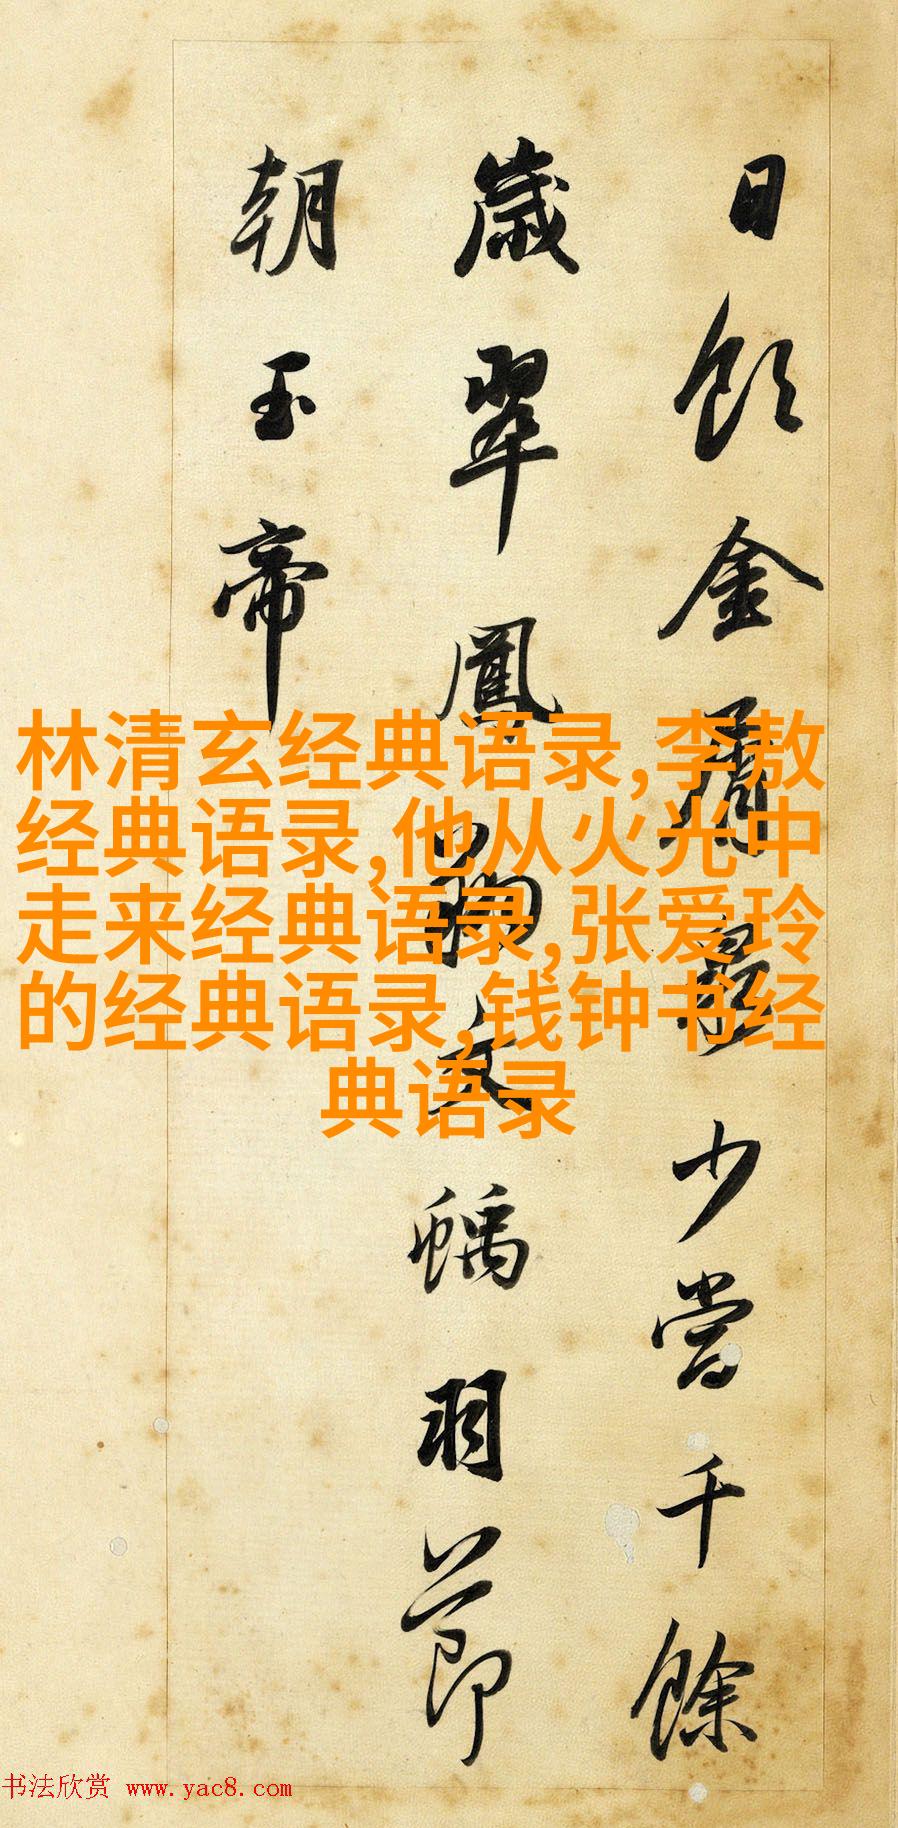 日飲金屑泉少當千餘
歲翠鳳文螭羽節
朝玉帝
林清玄经典语录,李敖
经典语录,他从火光中
走来经典语录,张爱玲
的经典语录,钱钟书经
典语录
书法欣赏 www.yac8.com